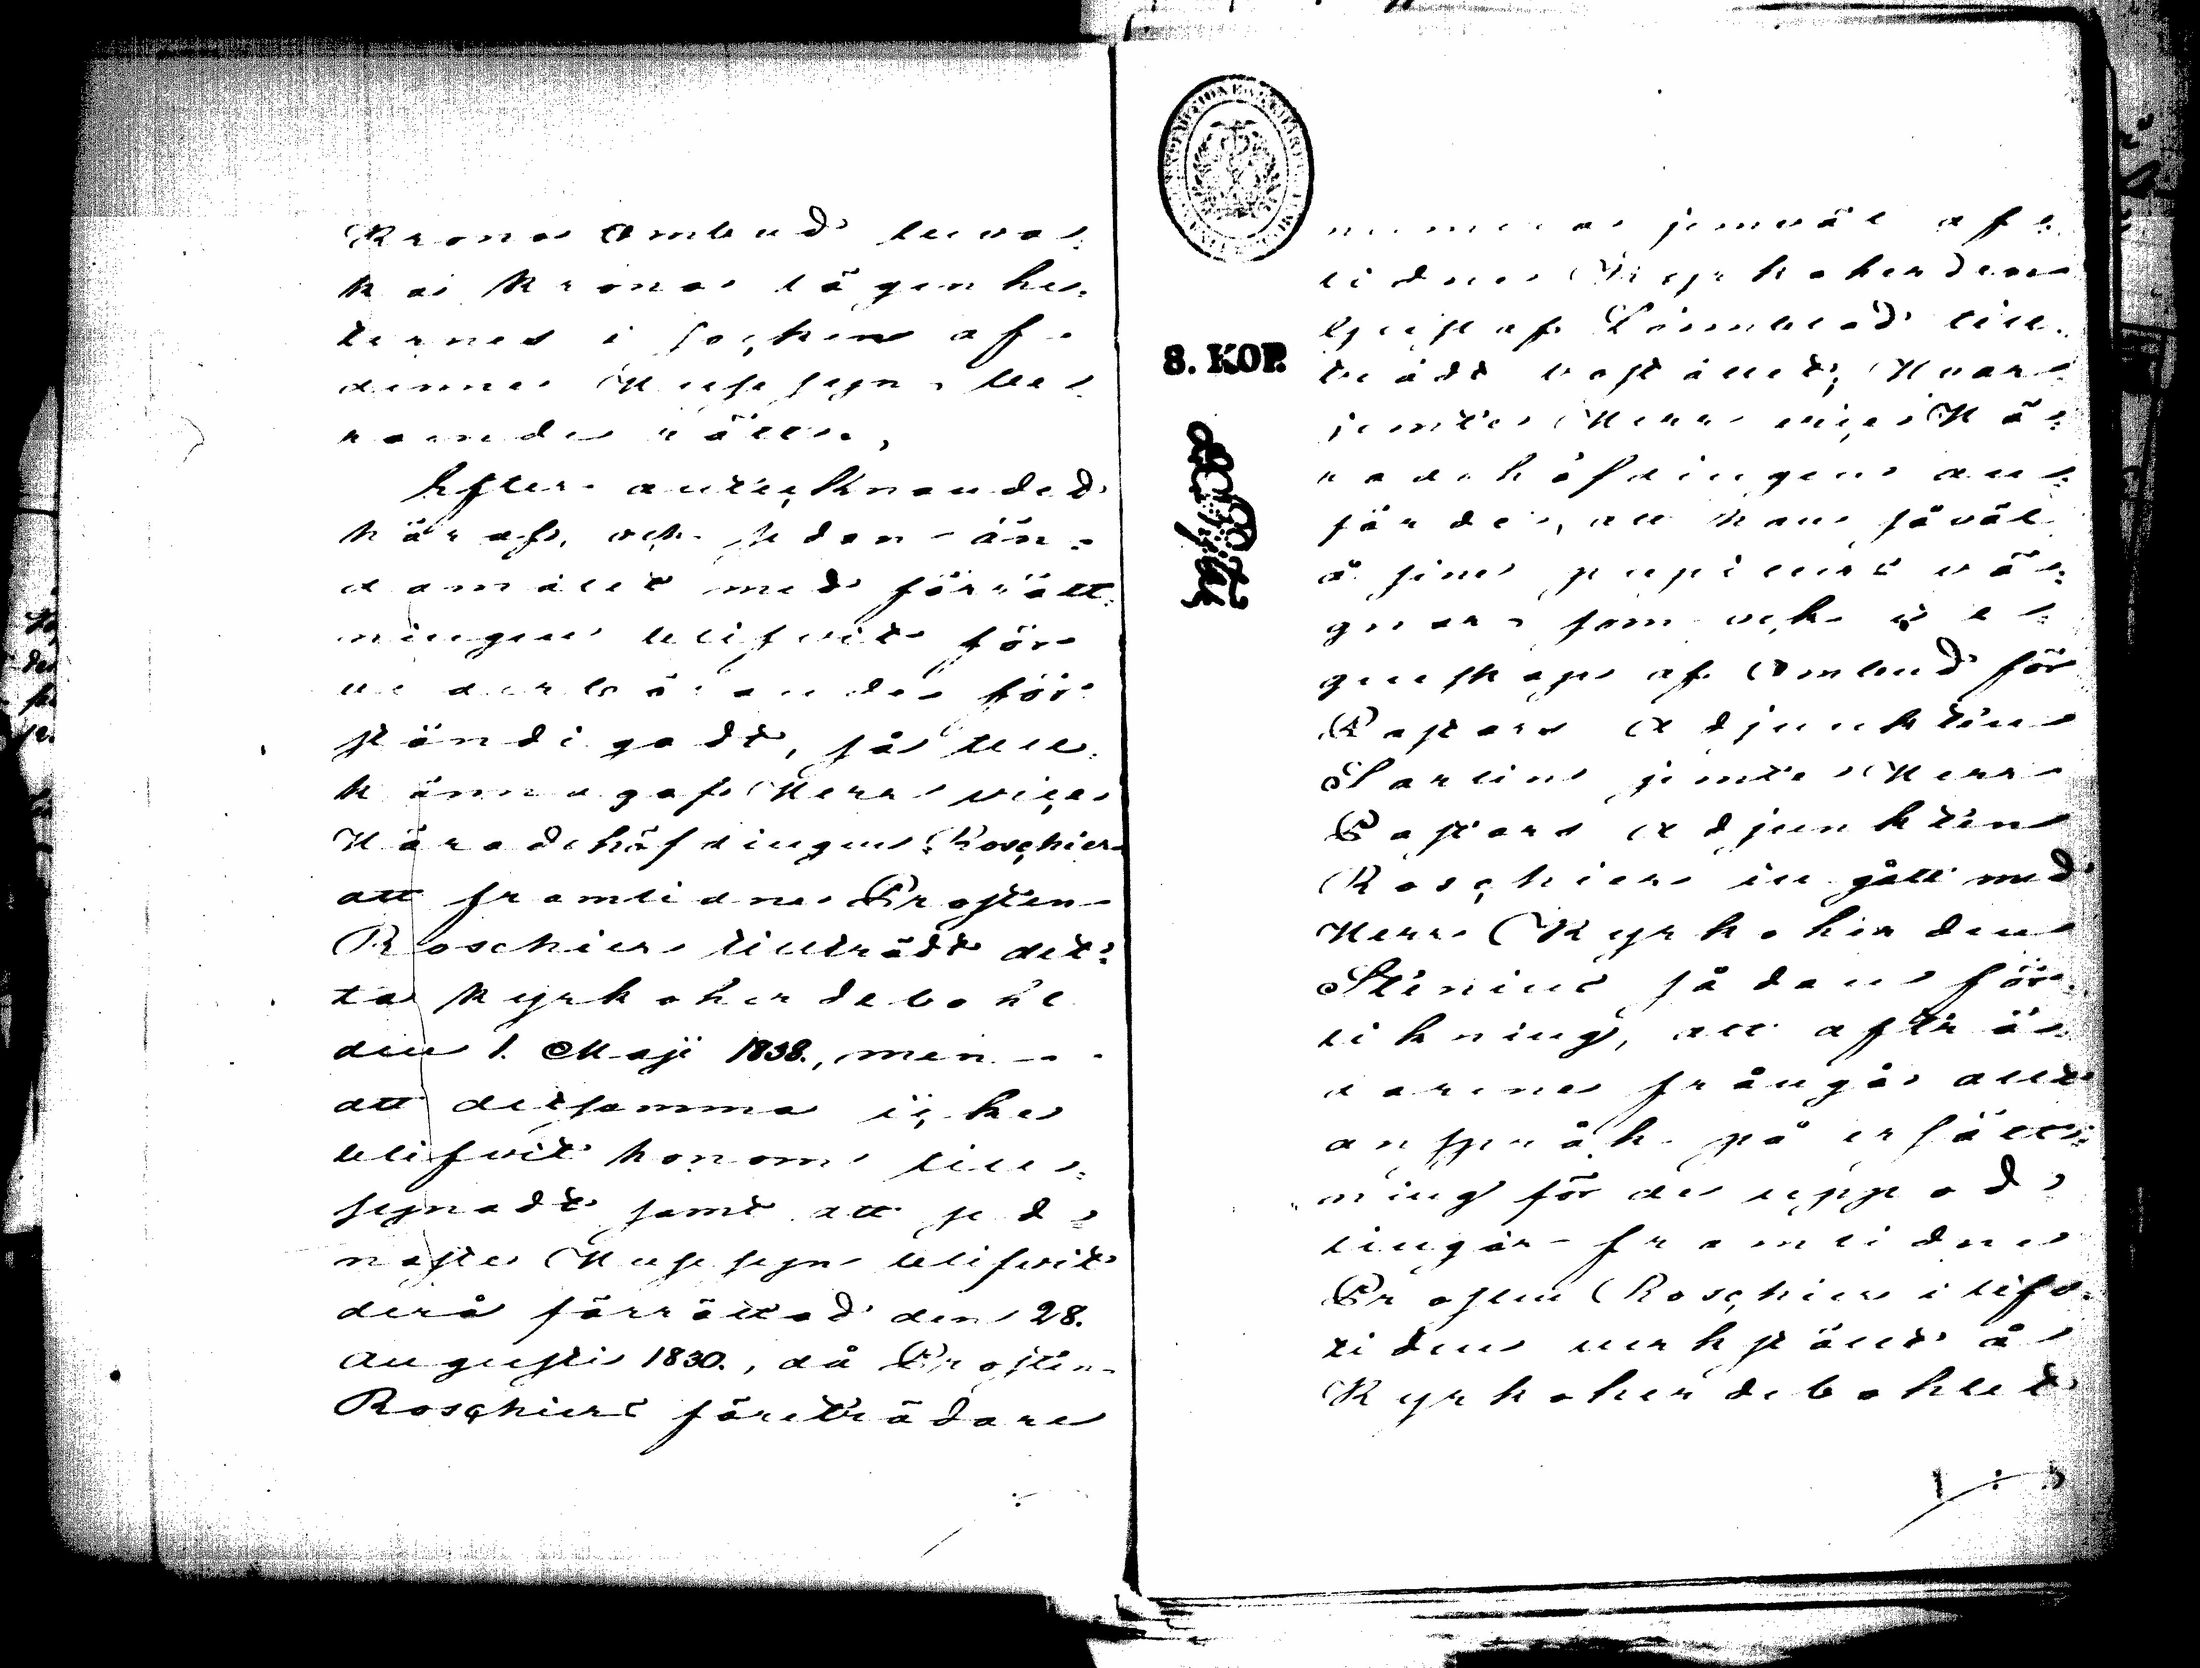 Krono Ombud beva-
ka Krono lägenhe-
ternes i Socken af
denna Huse syn be-
roende rätt.
Efter antecknandet
häraf, och sedan än-
damålet med förrätt-
ningen blifvit för
vederbörande för-
ständigadt, så till-
kännagaf Herr vice
Häradshöfdingen Roschier
att framlidne Prosten
Roschier tillträdt det-
ta Kyrkoherdebohl
den 1. Maji 1838., men
att detsamma icke
blifvit honom till-
synadt samt att sed-
naste Huse syn blifvit
derå förrättad den 28.
Augusti 1830., då Prosten
Roschiers företrädare
numera jemväl af-
lidne Kyrkoherden
Gustaf Lönnblad till-
trädt bostället; Hvar-
jemte Herr vice Hä-
radshöfdingen an-
förde, att han såväl
å sine pupillers väg-
gnar som ock i e-
genskap af Ombud för
Pastors Adjunkten
Sarlin jemte Herr
Pastors Adjunkten
Roschier ingått med
Herr Kyrkoherden
Stenius sådan för-
likning, att afträ-
darne frångå allt
anspråk på ersätt-
ning för de uppod-
lingar framlidne
Prosten Roschier i lifs-
tiden verkställt å
Kyrkoherdebohlet
8. KOP.